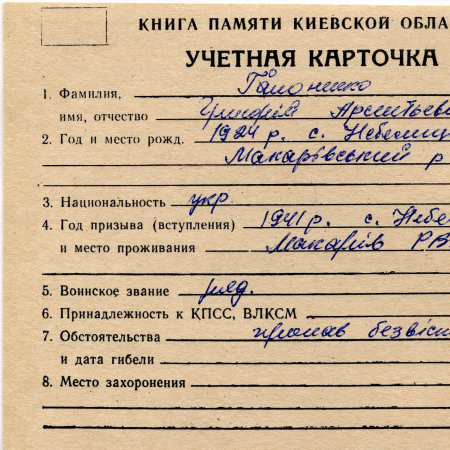 КНИГА ПАМЯТИ КИЕВСКОЙ ОБЛА
УЧЕТНАЯ КАРТОЧКА
1. Фамилия,
имя, отчество Григорій Арсентьеви
2. Год и место рожд. 1924 р. с. Небелиц
Макарівський р
3. Национальность укр.
4. Год призыва (вступления) 1941 р. с. Небе
и место проживания Макарів РВ
5. Воинское звание ряд.
6. Принадлежность к КПСС, ВЛКСМ
7. Обстоятельства пропав безвіс
и дата гибели
8. Место захоронения